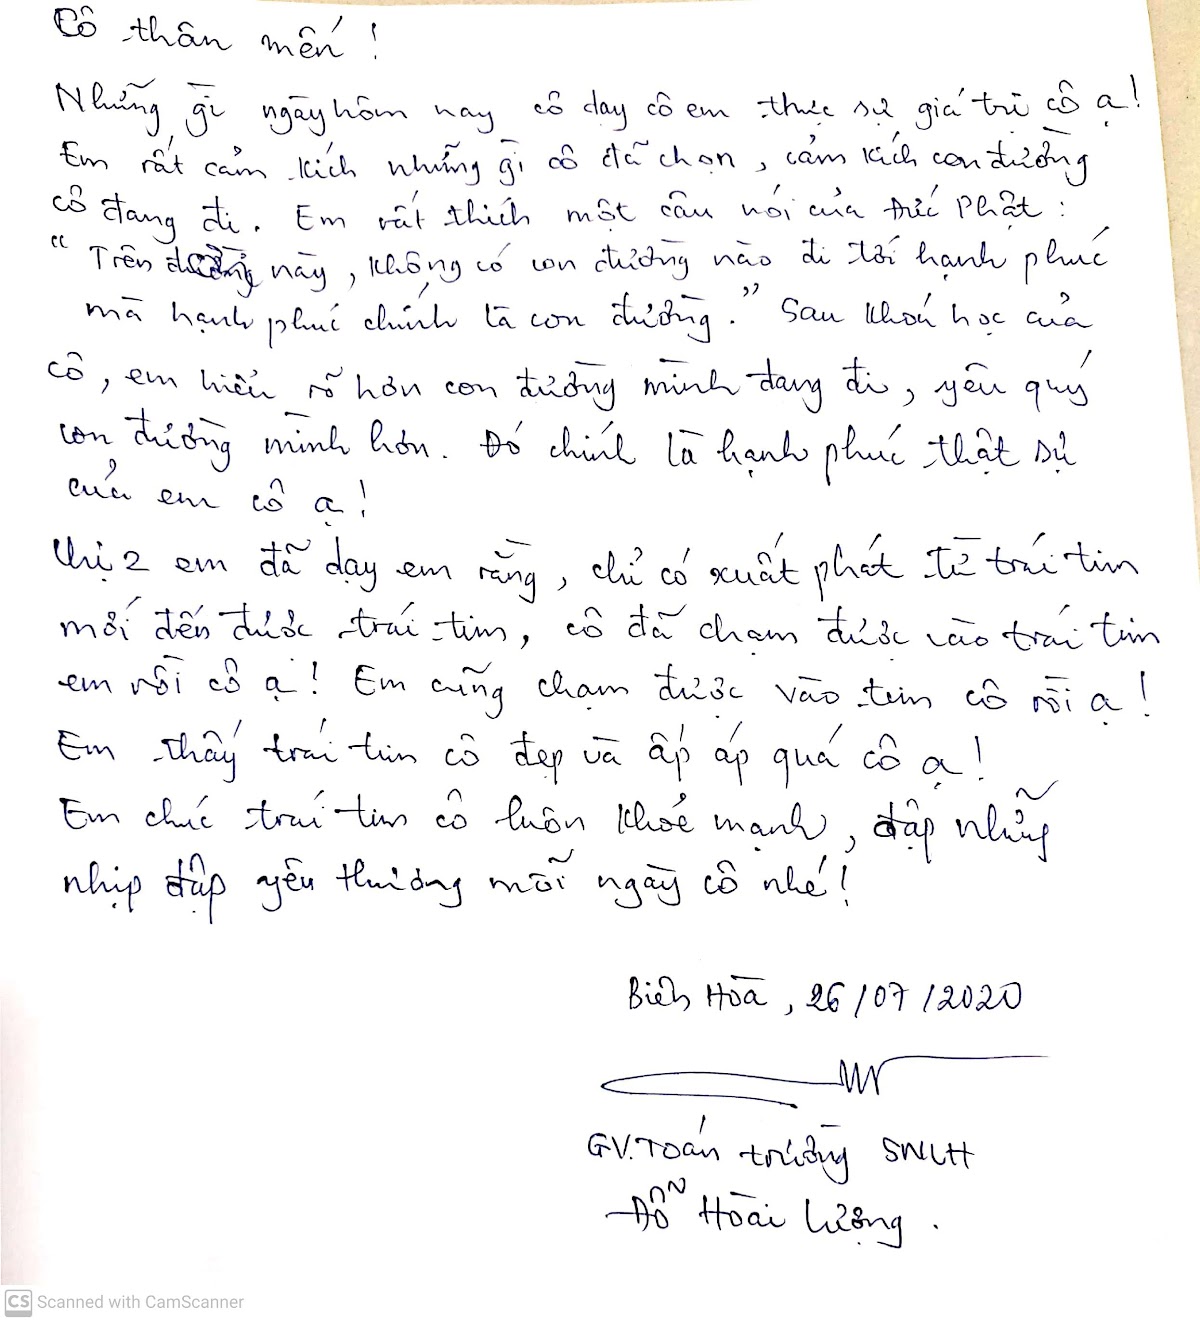 Cô thân mến!
Những gì ngày hôm nay cô dạy cô em thực sự giá trị cô ạ!
Em rất cảm kích những gì cô đã chọn, cảm kích con đường
cô đang đi. Em rất thích một câu nói của Đức Phật:
"Trên đường này, không có con đường nào đi tới hạnh phúc
mà hạnh phúc chính là con đường." Sau khoá học của
cô, em hiểu rõ hơn con đường mình đang đi, yêu quý
con đường mình hơn. Đó chính là hạnh phúc thật sự
của em cô ạ!
Chị 2 em đã dạy em rằng, chỉ có xuất phát từ trái tim
mới đến được trái tim, cô đã chạm được vào trái tim
em rồi cô ạ! Em cũng chạm được vào tim cô rồi ạ!
Em thấy trái tim cô đẹp và ấp áp quá cô ạ!
Em chúc trái tim cô luôn khoẻ mạnh, đập những
nhịp đập yêu thương mỗi ngày cô nhé!
Biên Hòa, 26/07/2020
GV. Toán trường SNLH
Đỗ Hoài Lượng.
CS Scanned with CamScanner